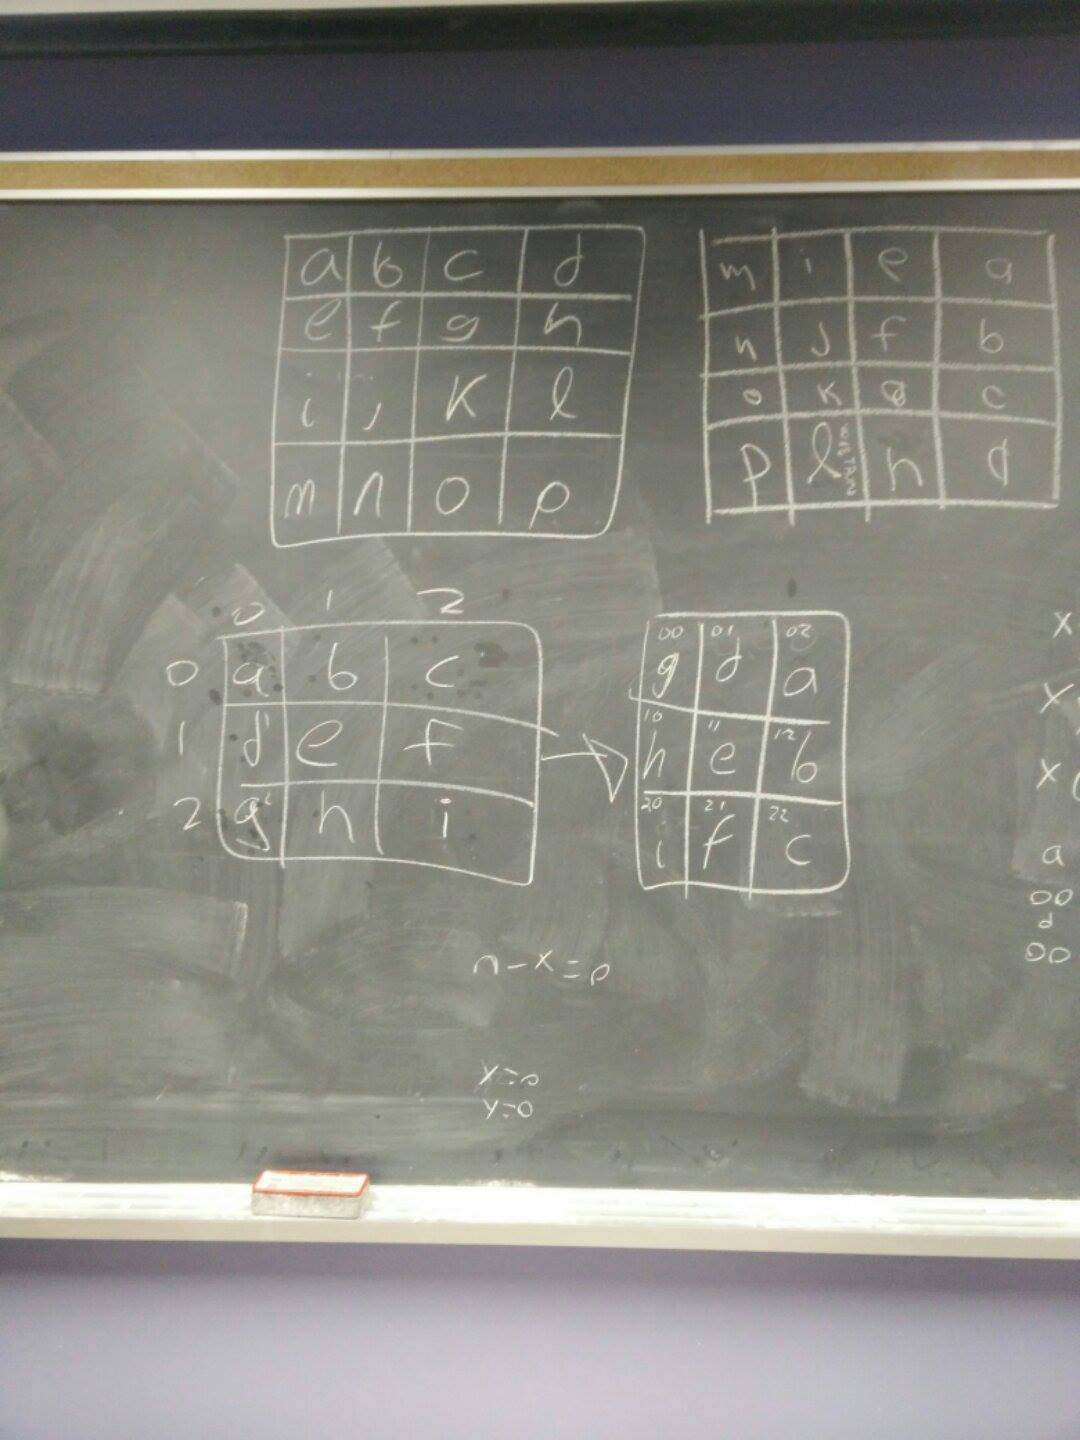 a b c d
e f g h
i j k l
m n o p
m i e a
n j f b
o k g c
p l h d
0 1 2
0 a b c
1 d e f
2 g h i
00 01 02
g d a
10 11 12
h e b
20 21 22
i f c
n-x=p
x=0
y=0
x
x
x
a
00
d
00